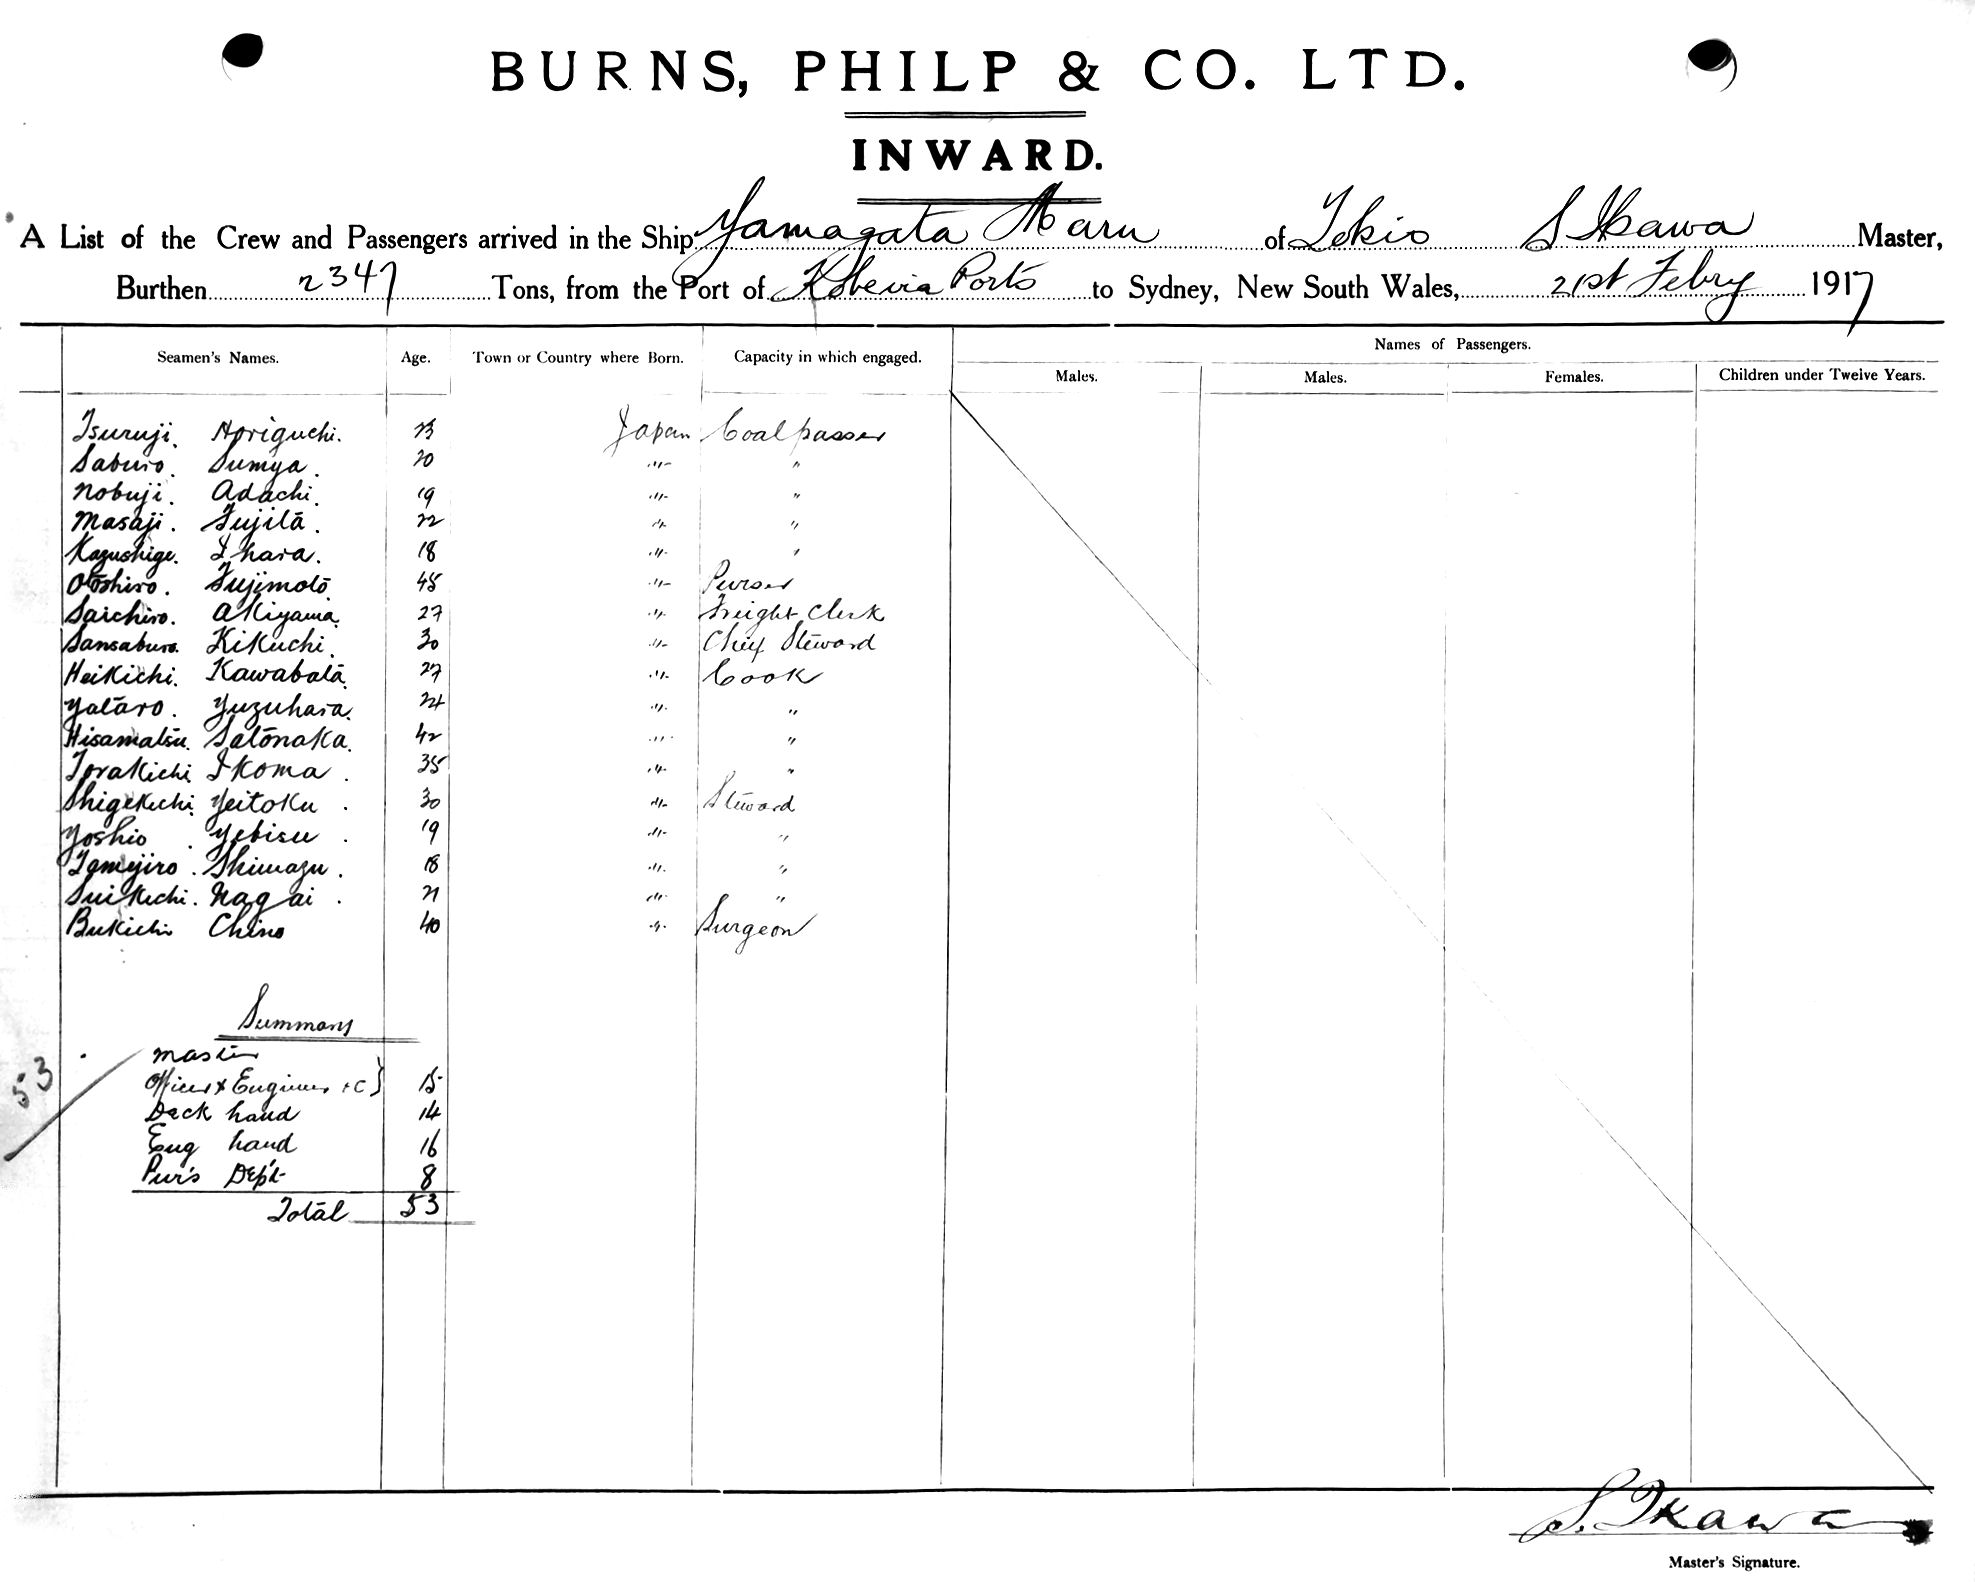 BURNS, PHILP & CO. LTD.
INWARD.
A List of the Crew and Passengers arrived in the Ship Yamagata Maru of Tokio S Ikawa Master,
Burthen 2347 Tons, from the Port of Kobe via Ports to Sydney, New South Wales, 21st Febry 1917
Seamen's Names. Age. Town or Country where Born. Capacity in which engaged. Names of Passengers.
Males. Males. Females. Children under Twelve Years.
Tsuruji. Horiguchi. 23 Japan Coalpasser
Saburo. Sumya. 20 " "
Nobuji. Adachi. 19 " "
Masaji. Fujita. 22 " "
Kazushige. Ihara. 18 " "
Otoshiro. Fujimoto. 45 " Purser
Saichiro. Akiyama. 27 " Freight Clerk
Sansaburo. Kikuchi. 30 " Chief Steward
Heikichi. Kawabata. 27 " Cook
Yataro. Yuzuhara. 24 " "
Hisamatsu. Satonaka. 42 " "
Torakichi. Ikoma. 35 " "
Shigekichi. Yeitoku. 30 " Steward
Yoshio. Yebisu. 19 " "
Tamejiro. Shimazu. 18 " "
Suikichi. Nagai. 21 " "
Bukichi Chino 40 " Surgeon
Summary
Master
Officers & Engineers &c } 15
Deck hand 14
53
Eng hand 16
Pur's Dep't 8
Total 53
S. Ikawa
Master's Signature.